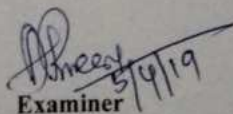 5/4/19
Examiner